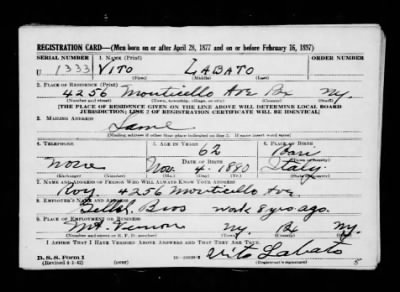 REGISTRATION CARD—(Men born on or after April 28, 1877 and on or before February 16, 1897)
SERIAL NUMBER 1. NAME (Print) ORDER NUMBER
U 1333 VITO LABATO
(First) (Middle) (Last)
2. PLACE OF RESIDENCE (Print)
4256 Monticello Ave Bx Ny.
(Number and street) (Town, township, village, or city) (County) (State)
[THE PLACE OF RESIDENCE GIVEN ON THE LINE ABOVE WILL DETERMINE LOCAL BOARD
JURISDICTION; LINE 2 OF REGISTRATION CERTIFICATE WILL BE IDENTICAL]
3. MAILING ADDRESS
Same
[Mailing address if other than place indicated on line 2. If same insert word same]
4. TELEPHONE 5. AGE IN YEARS 6. PLACE OF BIRTH
62 Bari
None DATE OF BIRTH
Nov. 4. 1880 Italy
(Exchange) (Number) (Mo.) (Day) (Yr.) (State or country)
7. NAME AND ADDRESS OF PERSON WHO WILL ALWAYS KNOW YOUR ADDRESS
4256 Monticello Ave.
8. EMPLOYER'S NAME AND ADDRESS
Bros work 8 yrs ago.
9. PLACE OF EMPLOYMENT OR BUSINESS
Mt. Vernon Ny. Ny
(Number and street or R. F. D. number) (Town) (County) (State)
I AFFIRM THAT I HAVE VERIFIED ABOVE ANSWERS AND THAT THEY ARE TRUE.
D. S. S. Form 1
(Revised 4-1-42) (over) Vito Labato
(Registrant's signature)